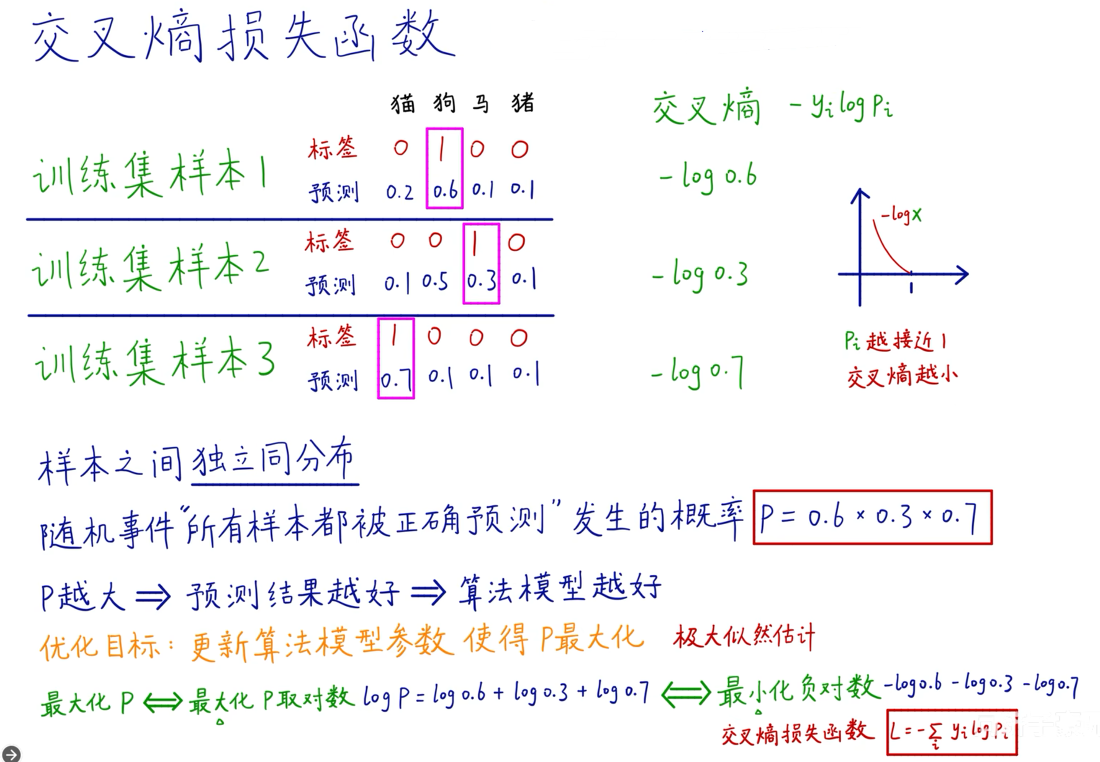 交叉熵损失函数
猫 狗 马 猪
训练集样本1
标签 0 1 0 0
预测 0.2 0.6 0.1 0.1
训练集样本2
标签 0 0 1 0
预测 0.1 0.5 0.3 0.1
训练集样本3
标签 1 0 0 0
预测 0.7 0.1 0.1 0.1
交叉熵 -yᵢlogPᵢ
-log 0.6
-log 0.3
-log 0.7
-logx
1
Pᵢ越接近1
交叉熵越小
样本之间独立同分布
随机事件“所有样本都被正确预测”发生的概率 P=0.6×0.3×0.7
P越大⇒预测结果越好⇒算法模型越好
优化目标：更新算法模型参数 使得P最大化 极大似然估计
最大化P⟺最大化P取对数 logP=log0.6+log0.3+log0.7⟺最小化负对数-log0.6-log0.3-log0.7
交叉熵损失函数 L=-∑ᵢ yᵢlogPᵢ